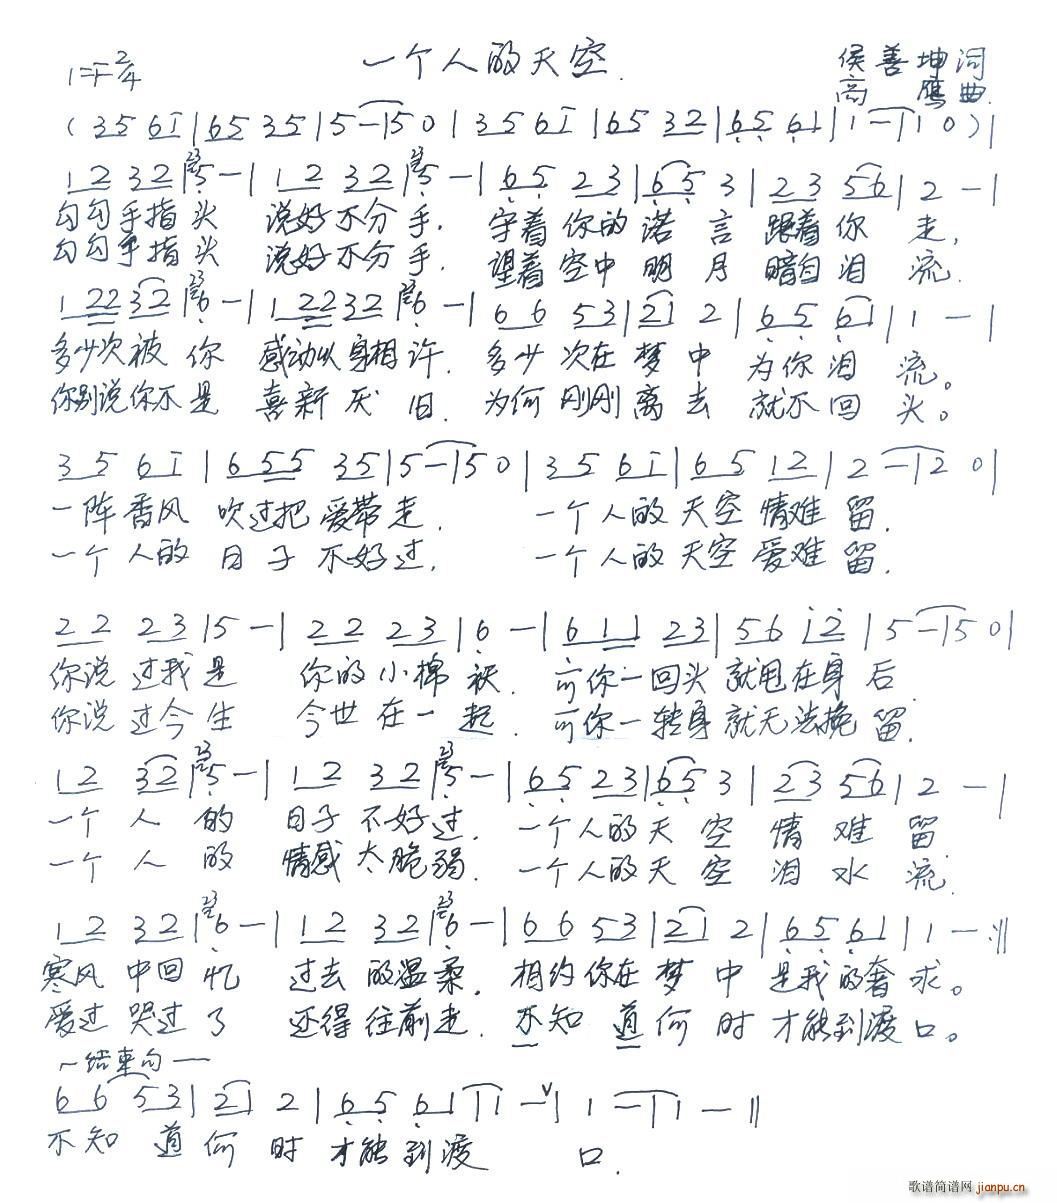 一个人的天空.
1=F 2/4
侯善坤词
高鹰曲.
(35 6i|65 35|5-|50|35 6i|65 32|65 61|1-|10)|
12 32|5-|12 32|5-|65 23|65 3|23 56|2-|
勾勾手指头 说好不分手. 守着你的诺言 跟着你走,
勾勾手指头 说好不分手. 望着空中明月 暗自泪流.
1 22 32|6-|1 22 32|6-|66 53|21 2|65 61|1-|
多少次被你 感动以身相许. 多少次在梦中 为你泪流。
你别说你不是 喜新厌旧. 为何刚刚离去 就不回头。
35 6i|6 55 35|5-|50|35 6i|65 12|2-|20|
一阵香风 吹过把爱带走. 一个人的天空情难留.
一个人的日子不好过. 一个人的天空爱难留.
22 23|5-|22 23|6-|6 11 23|56 i2|5-|50|
你说过我是 你的小棉袄. 可你一回头就甩在身后.
你说过今生 今世在一起. 可你一转身就无法挽留.
12 32|5-|12 32|5-|65 23|65 3|23 56|2-|
一个人的 日子不好过. 一个人的天空情难留.
一个人的 情感太脆弱. 一个人的天空泪水流.
12 32|6-|12 32|6-|66 53|21 2|65 61|1-:||
寒风中回忆 过去的温柔. 相约你在梦中 是我的奢求。
爱过哭过了 还得往前走. 不知道何时才能到渡口。
~结束句—
66 53|21 2|65 61|1-∨|1-|1-||
不知道何时才能到渡口.
歌谱简谱网
jianpu.cn